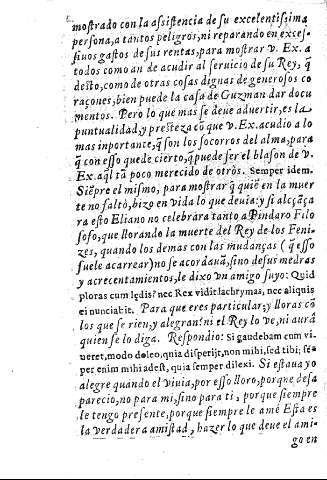 mostrado con la assistencia de su excelentissima
persona, a tantos peligros, ni reparando en exces-
siuos gastos de sus rentas, para mostrar v. Ex. a
todos como an de acudir al seruicio de su Rey, q̃
desto, como de otras cosas dignas de generosos co
raçones, bien puede la casa de Guzman dar docu
mentos. Pero lo que mas se deue aduertir, es la
puntualidad, y presteza cõ que v. Ex. acudio a lo
mas importante, q̃ son los socorros del alma, para
q̃ con esso quede cierto, q̃ puede ser el blason de v.
Ex. aql tã poco merecido de otros. Semper idem.
Siẽpre el mismo, para mostrar q̃ quiẽ en la muer
te no faltò, hizo en vida lo que deuia: y si alcãça
ra esto Eliano no celebrára tanto a Pindaro Filo
sofo, que llorando la muerte del Rey de los Feni-
zes, quando los demas con las mudanças (q̃ esso
suele acarrear) no se acordauã, sino de sui medras
y acrecentamientos, le dixo vn amigo suyo: Quid
ploras cum lędis? nec Rex vidit lachrymas, nec aliquis
ei nunciabit. Para que eres particular, y lloras cõ
los que se rien, y alegran? ni el Rey lo ve, ni aurá
quien se lo diga. Respondio: Si gaudebam cum vi-
ueret, modo doleo, quia disperijt, non mihi, sed tibi; sẽ-
per enim mihi adest, quia semper dilexi. Si estaua yo
alegre quando el viuia, por esso lloro, porque desa
parecio, no para mi, sino para ti, porque siempre
le tengo presente, porque siempre le amè Esta es
la verdadera amistad, hazer lo que deue el ami-
go en